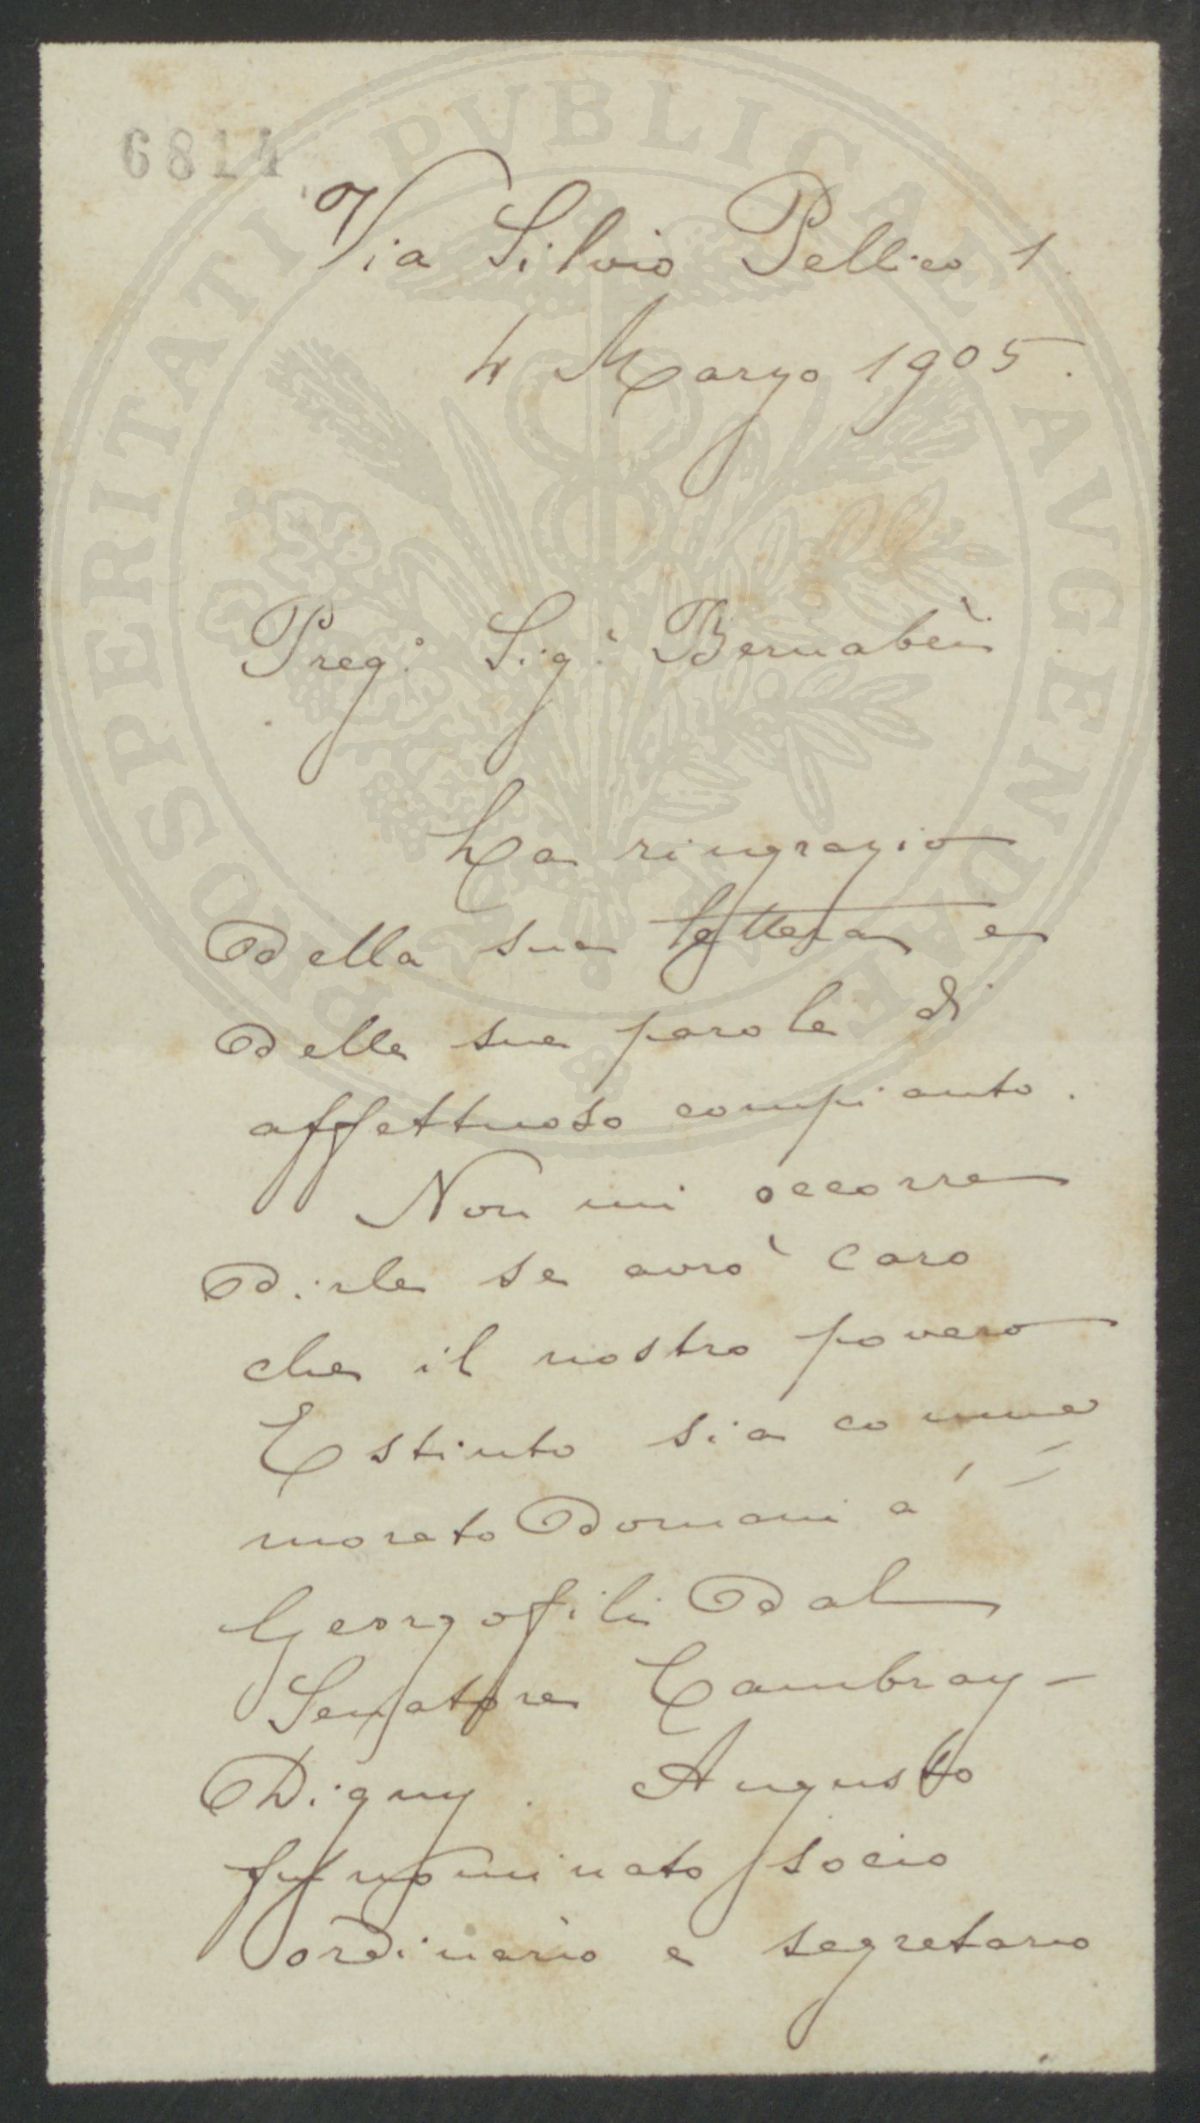 6814
Via Silvio Pellico 1.
4 Marzo 1905.
Preg.º Sig.r Bernabèi
La ringrazio
della sua lettera e
delle sue parole di
affettuoso compianto.
Non mi occorre
dirle se avrò caro
che il nostro povero
Estinto sia comme
morato domani a'
Georgofili dal
Senatore Cambray-
Digny. Augusto
fu nominato socio
ordinario e segretario
PROSPERITATI PVBLICAE AVGENDAE